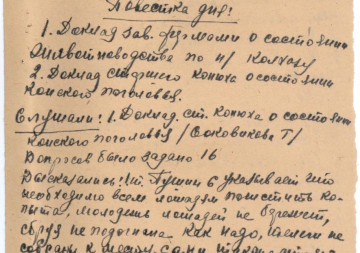 Повестка дня:
1. Доклад зав. фермами о состоянии
животноводства по н/ Колхозу
2. Доклад старшего Конюха о состоянии
Конского поголовья.
Слушали: 1. Доклад. ст. Конюха о состоянии
Конского поголовья /Соковикова Т/
Вопросов было задано 16
Высказались: Пушин Б указывает что
необходимо всем лошадям почистить ко-
пыта, молодых лошадей не
сбруя не подогнана как надо, телеги не
собраны к месту.